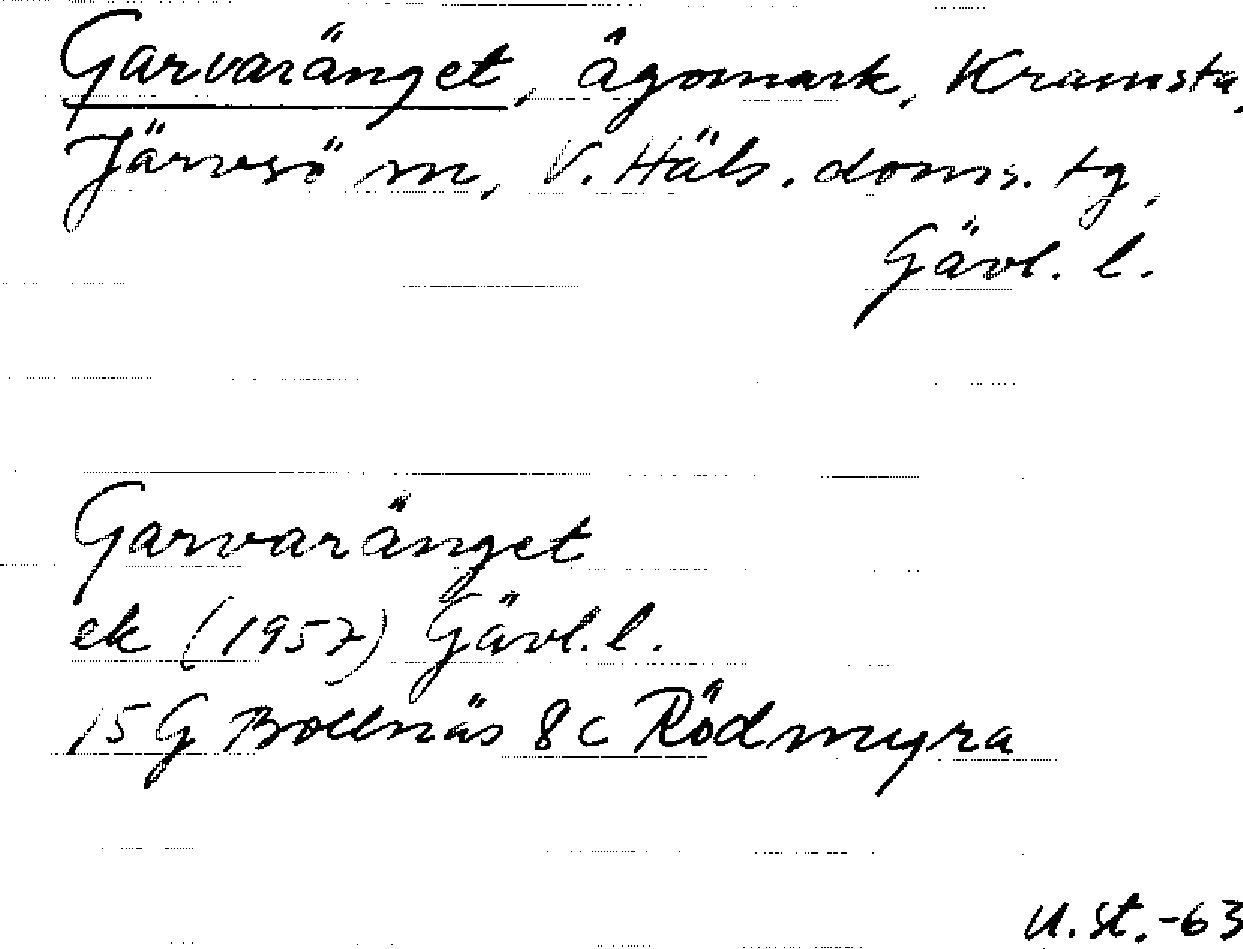 Garvaränget, ägomark, Kramsta,
Järvsö sn, V. Häls. doms. tg,
Gävl. l.
Garvaränget
ek (1957) Gävl. l.
15 G Bollnäs 8 c Rödmyra
U. St. -63